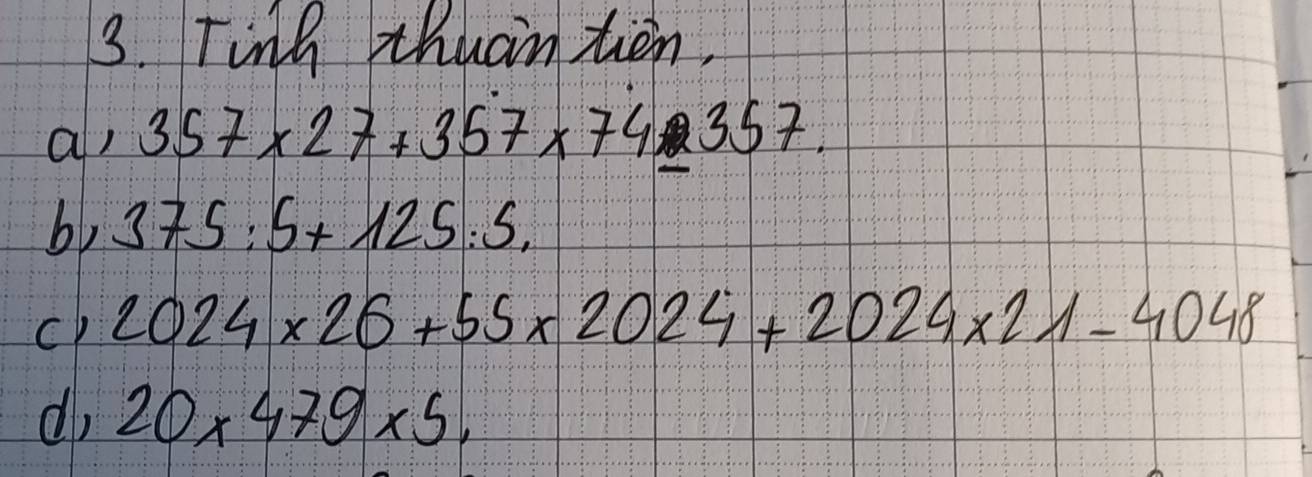 3. Tính thuận tiện.
a, 357 x 27 + 357 x 74 - 357.
b, 375 : 5 + 125 : 5.
c, 2024 x 26 + 55 x 2024 + 2024 x 21 - 4048
d, 20 x 479 x 5.